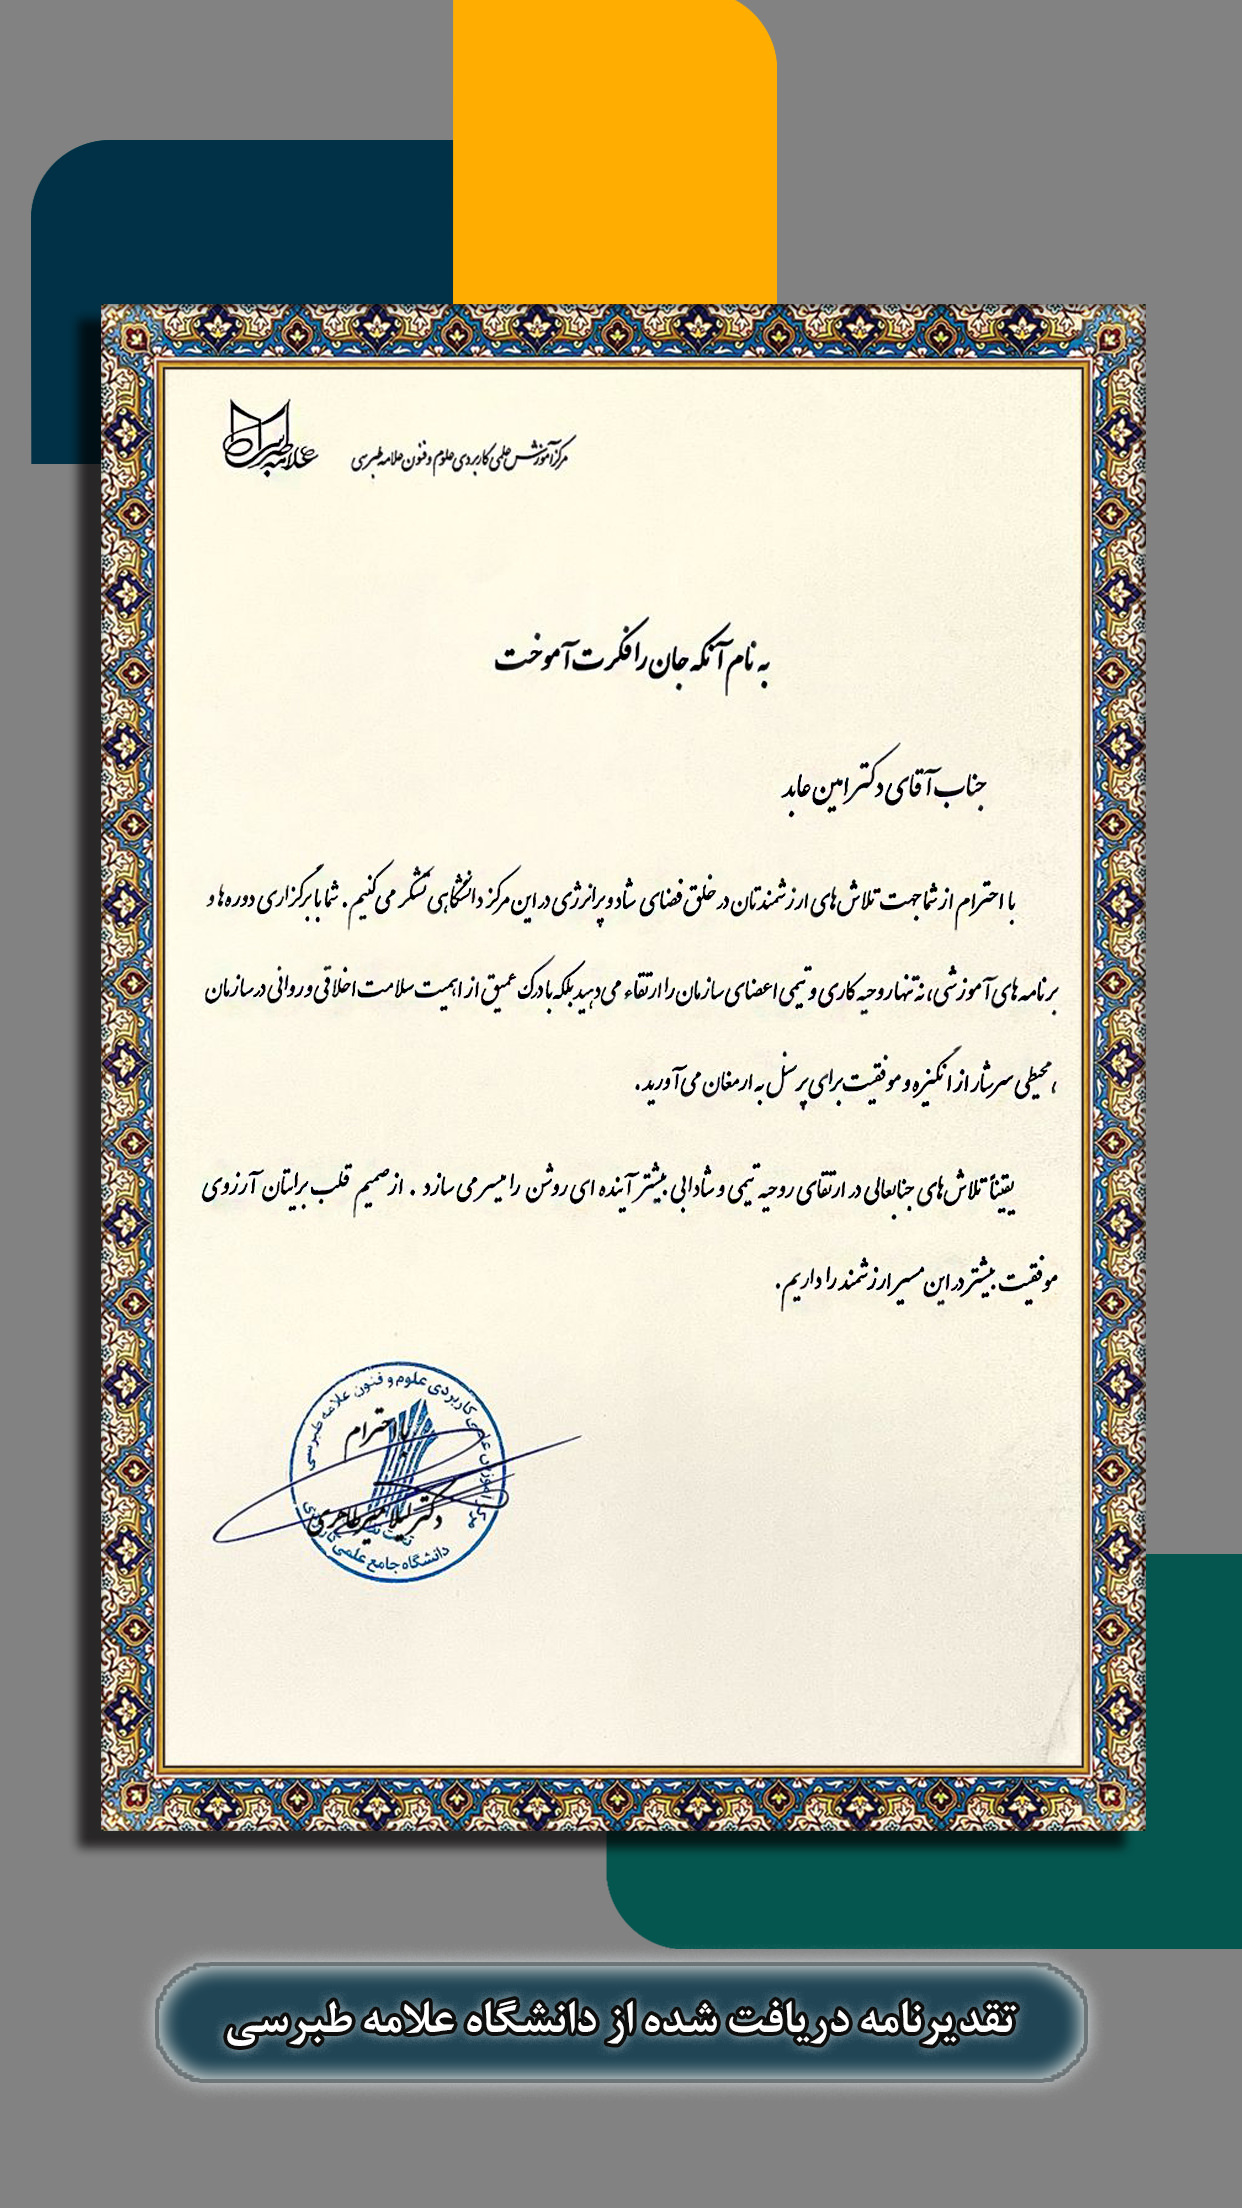 علامه طبرسی
مرکز آموزش علمی کاربردی علوم و فنون علامه طبرسی
به نام آنکه جان را فکرت آموخت
جناب آقای دکتر امین عابد
با احترام از شما جهت تلاش های ارزشمندتان در خلق فضای شاد و پرانرژی در این مرکز دانشگاهی تشکر می کنیم . شما با برگزاری دوره ها و
برنامه های آموزشی، نه تنها روحیه کاری و تیمی اعضای سازمان را ارتقاء می دهید بلکه با درک عمیق از اهمیت سلامت اخلاقی و روانی در سازمان
، محیطی سرشار از انگیزه و موفقیت برای پرسنل به ارمغان می آورید .
یقیناً تلاش های جنابعالی در ارتقای روحیه تیمی و شادابی بیشتر آینده ای روشن را میسر می سازد . از صمیم قلب برایتان آرزوی
موفقیت بیشتر در این مسیر ارزشمند را داریم .
مرکز آموزش علمی کاربردی علوم و فنون علامه طبرسی
با احترام
دکتر لیلا میرطاهری
دانشگاه جامع علمی کاربردی
تقدیرنامه دریافت شده از دانشگاه علامه طبرسی